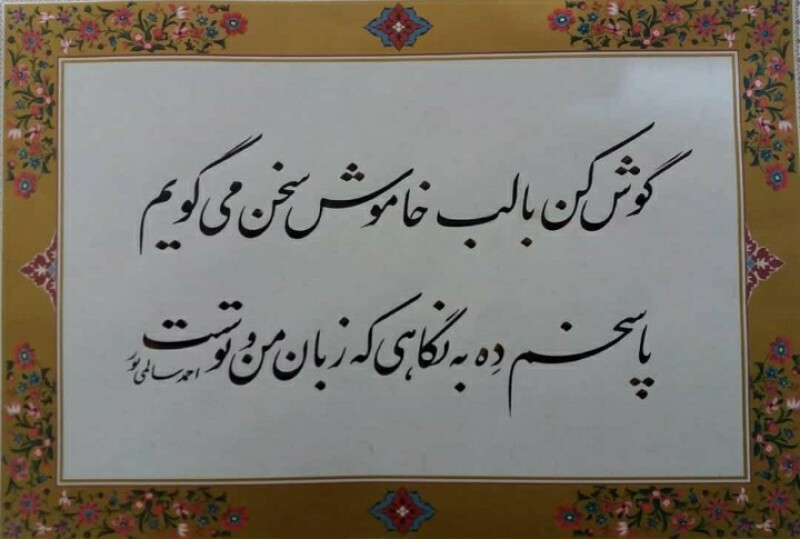 گوش کن با لب خاموش سخن می گویم
پاسخم دِه به نگاهی که زبان من و توست
احمد سالمی پور